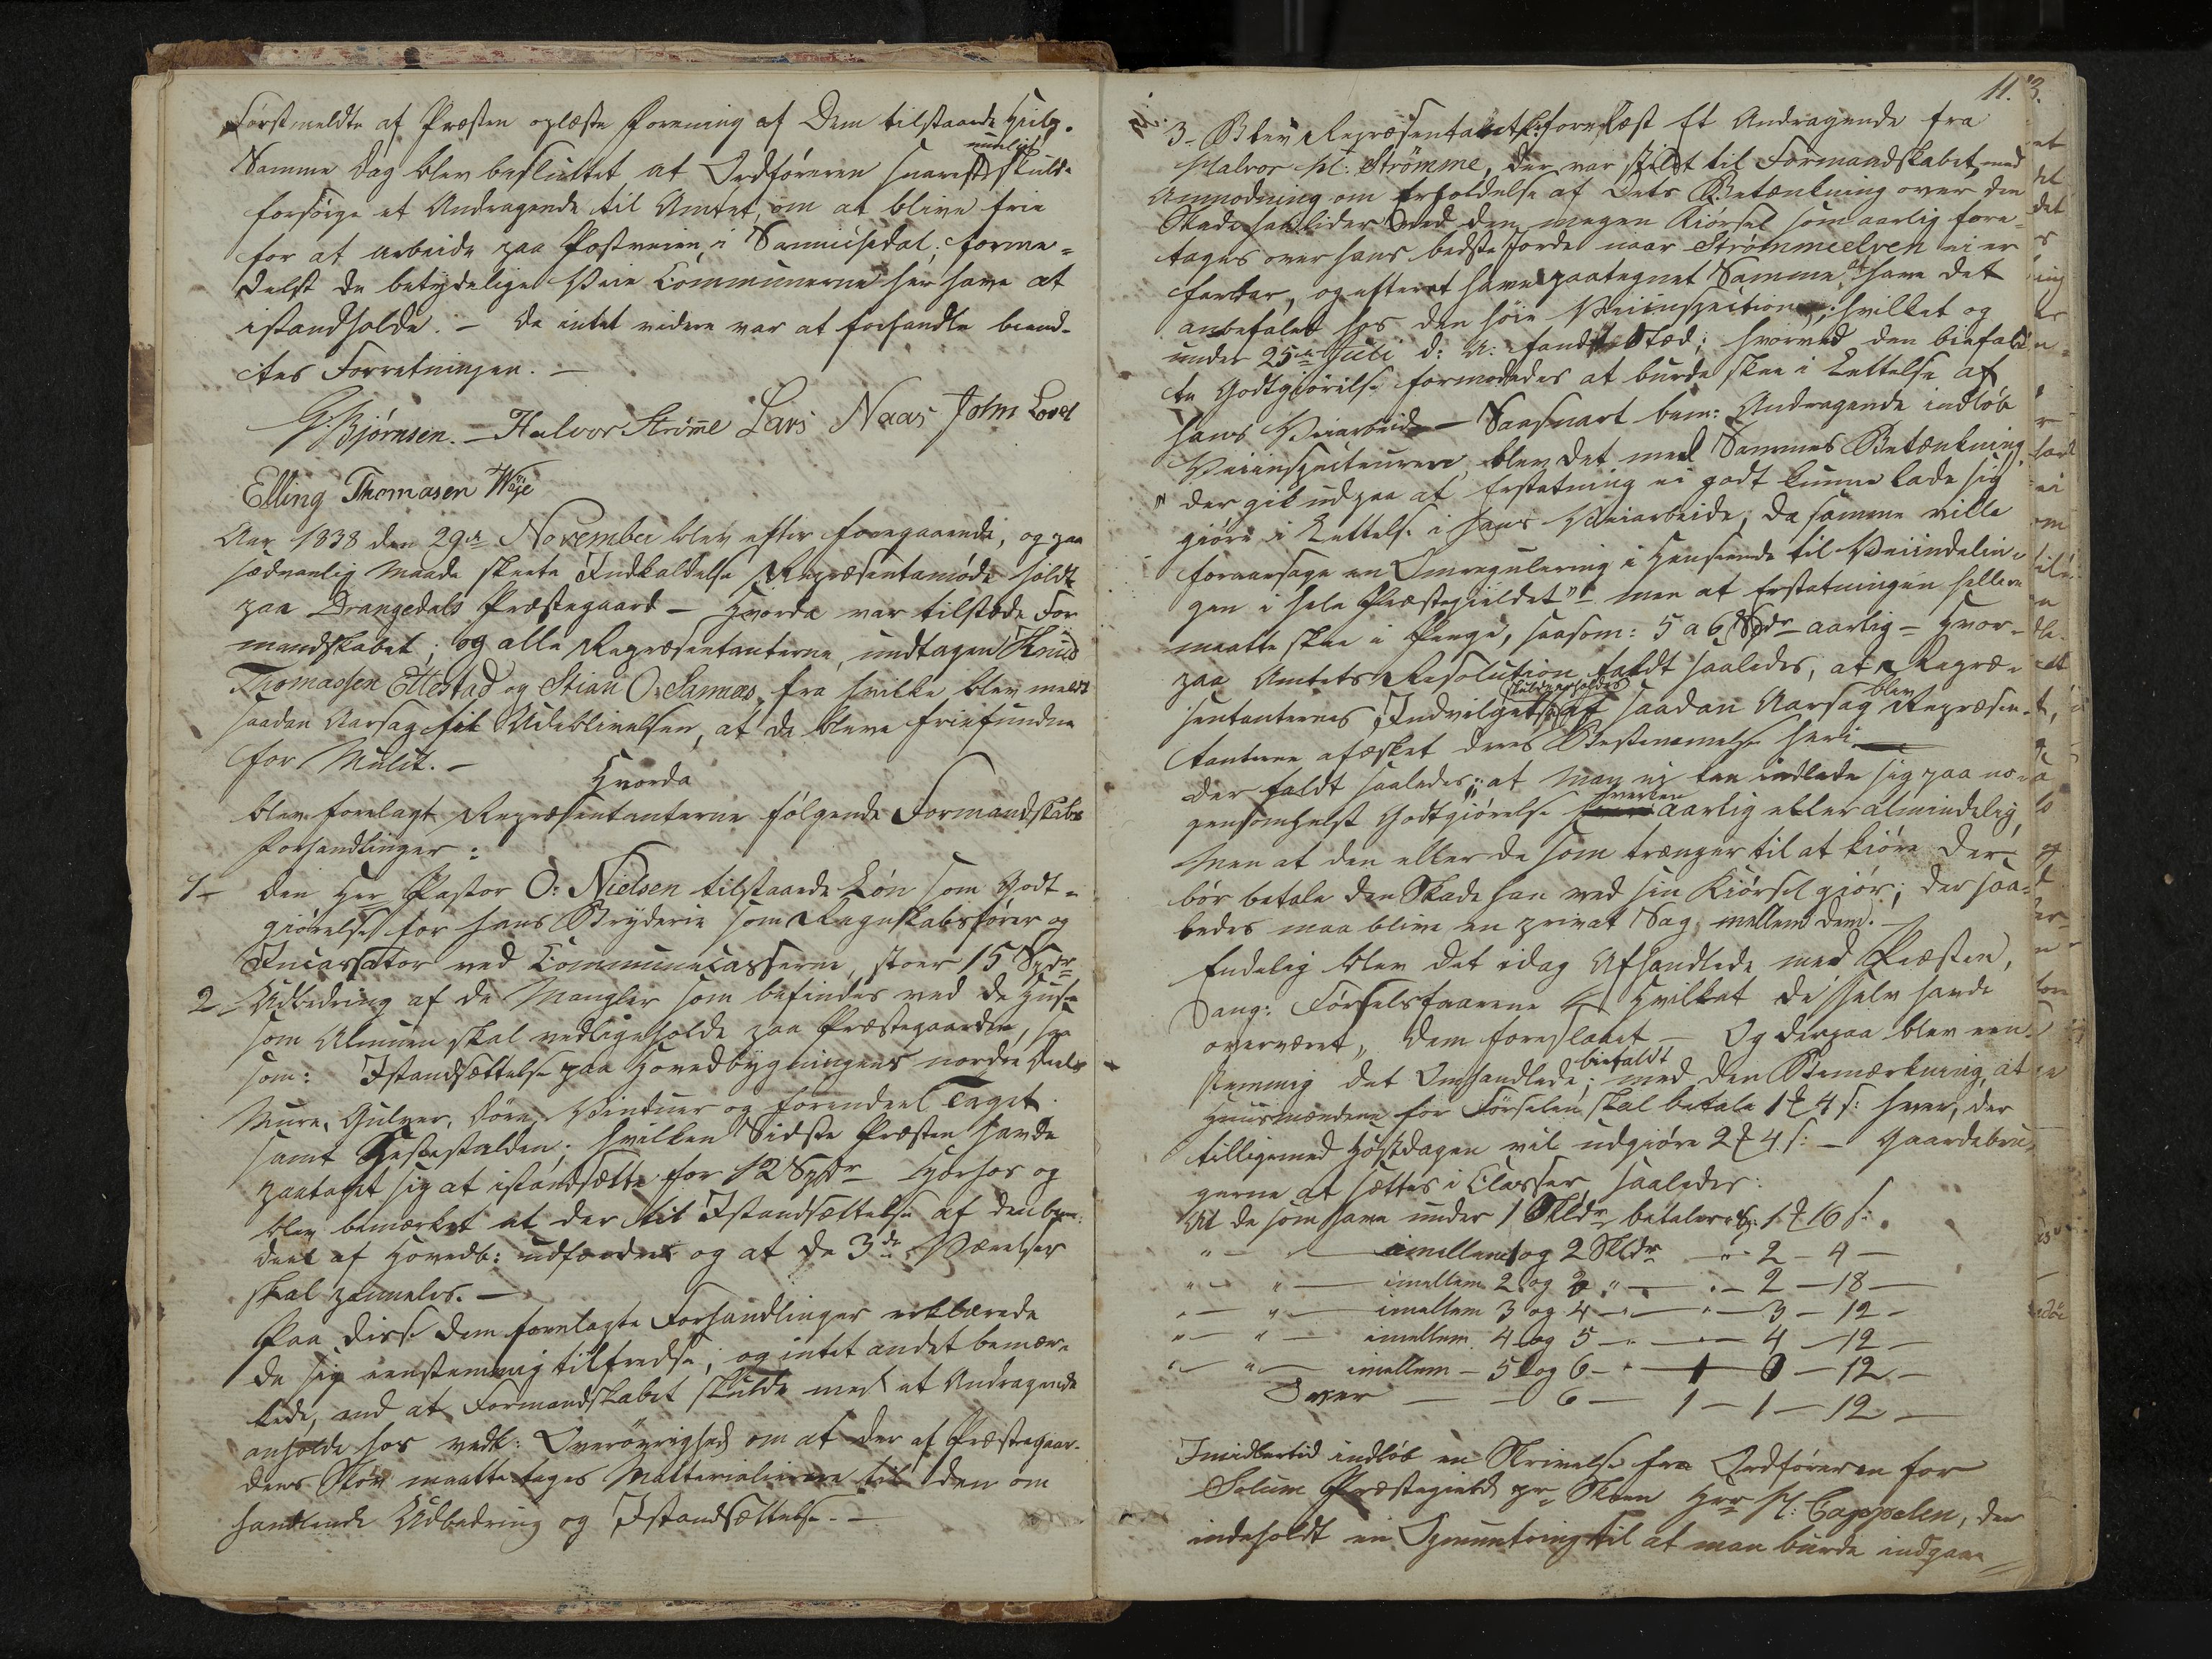 Førstmeldte af Præsten oplæste Forening af Dem tilstaaede Hielp.
Samme Dag blev besluttet at Ordføreren snarest mueligt skulde
forsørge et Andragende til Amtet, om at blive frie
for at arbeide paa Postveien i Sannikedal; forme-
delst de betydelige Veie Communerne her have at
istandholde. – Da intet videre var at forhandle beend-
tes Forretningen. –
G. Bjørnsen. – Halvor Strøme Lars Naas John Lovel
Elling Thomasen Wøje
Aar 1838 den 29de November blev efter foregaaende, og paa
sædvanlig Maade skeete Indkaldelse Repræsentamøde holdt
paa Drangedals Præstegaard – Hvorda var tilstede For
mandskabet; og alle Repræsentanterne, undtagen Knud
Thomassen Ettestad og Stian O: Sannæs, fra hvilke blev meldt
saadan Aarsag til Udeblivelsen, at de bleve friefundne
for Mulct. –
Hvorda
blev forelagt Repræsentanterne følgende Formandskabs
Forhandlinger:
1– Den Herr Pastor O: Nielsen tilstaaede Løn som Godt-
giørelse for hans Bryderie som Regnskabsfører og
Incassator ved Communecasserne, stoer 15 Spdr
2– Udbedring af de Mangler som befindes ved de Huse
som Almuen skal vedligeholde paa Præstegaarden, saa
som: Istandsættelse paa Hovedbygningens nordre Deel
Mure, Gulver, Døre, Vinduer og forendeel Taget.
samt Hestestalden; hvilken Sidste Præsten havde
paataget sig at istandsætte for 12 Spdr – Hvorhos og
blev bemærket at der til Istandsættelse af den bem:
deel af Hovedb: udfordres og at de 3de Værelser
skal panneles. –
Paa disse dem forelagte Forhandlinger erklærede
de sig eenstemmig tilfredse; og intet andet bemær-
kede, end at Formandskabet skulde med et Andragende
anholde hos vedk: Overøvrighed om at der af Præstegaar-
dens Skov maatte tages Matterialierne til den om
handlende Udbedring og Istandsættelse. –
11. 3.
3– Blev Repræsentantsk: forelæst Et Andragende fra
Halvor H: Strømme, der var stilet til Formandskabet, med
Anmodning om Erholdelse af Dets Betænkning over den
Skade han lider ved den megen Kiørsel som aarlig fore-
tages over hans bedste Jorde naar Strømmeelven ei er
farbar, og efter at have paategnet Samme at have det
anbefalet hos den høie Veiinspection; hvilket og
under 25de Juli d: A: fandt Stæd; hvorved den biefald
te Godtgiørelse formodedes at burde skee i Lettelse af
hans Veiarbeide – Saasnart bem: Andragende indløb
Veiinspecteuren, blev det med Sammes Betænkning,
" der gik ud paa at Erstatning ei godt kunne lade sig
giøre i Lettelse i hans Veiarbeide, da samme ville
foraarsage en Omregulering i Henseende til Veiindelin-
gen i hele Præstegieldet" – men at Erstatningen hellere
maatte skee i Penge, saasom: 5 a 6 Spdr aarlig – Hvor-
paa Amtets Resolution faldt saaledes, at Repræ-
sentanternes Indvilgelse skulde indholdes af saadan Aarsag blev Repræsen-
tanterne afæsket deres Bestemmelse heri
der faldt saaledes; at man ei kan indlade sig paa no-
gensomhelst Godtgiørelse hverken aarlig eller almindelig,
Men at den eller de som trænger til at kiøre der
bør betale den Skade han ved sin Kiørsel giør; der saa-
ledes maa blive en privat Sag mellem dem. –
Endelig blev det idag Afhandlede med Præsten,
ang: Førselsfaarene Hvilket de selv havde
overværet, dem foreslaaet – Og derpaa blev een
stemmig det Omhandlede biefaldt; med den Bemærkning, at
Huusmændene for Førselen skal betale 1 ₰ 4 s: hver, der
tilligemed Høstdagen vil udgiøre 2 ₰ 4 s: – Gaardebru-
gerne at sættes i Classer, saaledes:
At de som have under 1 Skldr betaler 1 ₰ 16 s:
" – " – imellem 1 og 2 Skldr – " – 2 – 4 –
" – " – imellem 2 og 3 " – " – 2 – 18 –
" – " – imellem 3 og 4 – " – 3 – 12 –
" – " – imellem 4 og 5 – " – 4 – 12 –
" – " – imellem – 5 og 6 – " – 1 – 0 – 12 –
Over – – 6 – 1 – 1 – 12 –
Imidlertid indløb en Skrivelse fra Ordføreren for
Solum Præstegield pr Skeen Herr H: Cappelen, der
indeholdt en Opmuntring til at man burde indgaae